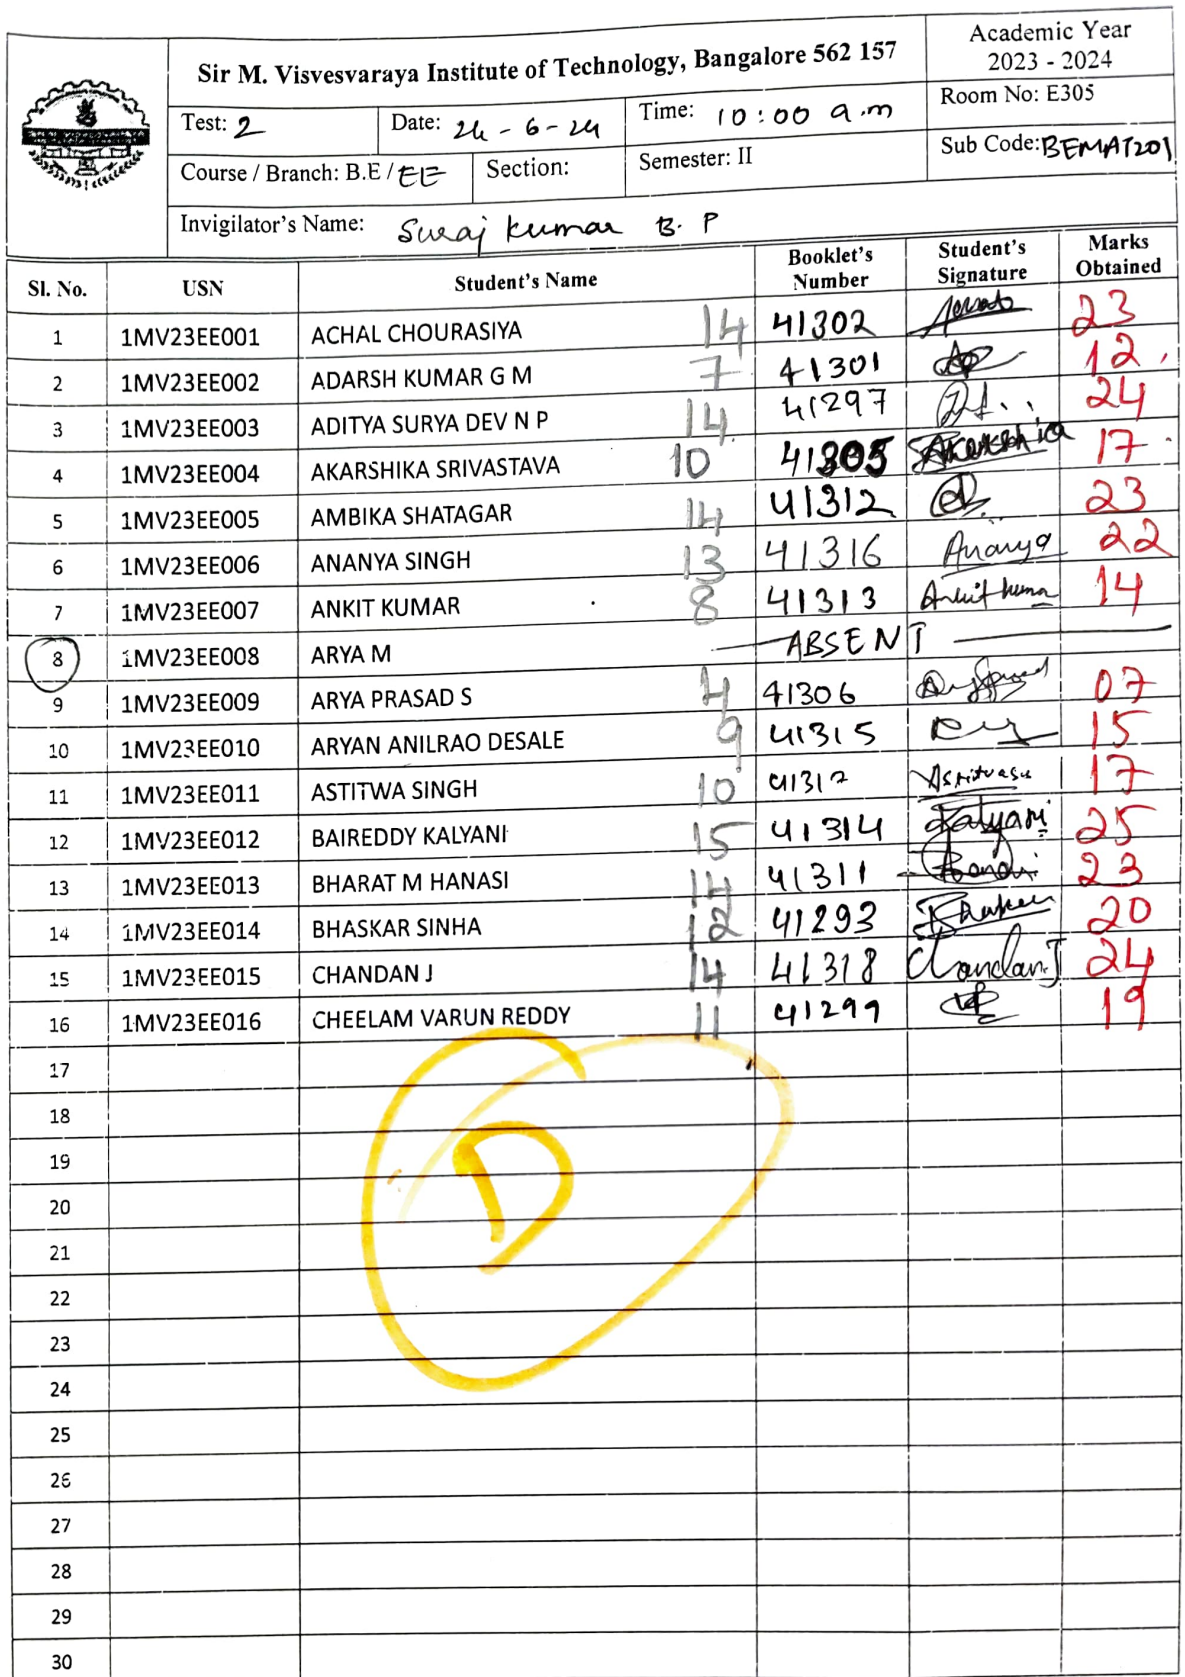 Sir M. Visvesvaraya Institute of Technology, Bangalore 562 157
Academic Year
2023 - 2024
Test: 2 Date: 24 - 6 - 24 Time: 10:00 a.m Room No: E305
Course / Branch: B.E / EE Section: Semester: II Sub Code: BEMAT201
Invigilator's Name: Suraj Kumar B. P
Sl. No. USN Student's Name Booklet's Number Student's Signature Marks Obtained
1 1MV23EE001 ACHAL CHOURASIYA 14 41302 23
2 1MV23EE002 ADARSH KUMAR G M 7 41301 12
3 1MV23EE003 ADITYA SURYA DEV N P 14 41297 24
4 1MV23EE004 AKARSHIKA SRIVASTAVA 10 41305 Akarshika 17
5 1MV23EE005 AMBIKA SHATAGAR 14 41312 23
6 1MV23EE006 ANANYA SINGH 13 41316 Ananya 22
7 1MV23EE007 ANKIT KUMAR 8 41313 Ankit kumar 14
8 1MV23EE008 ARYA M ABSENT
9 1MV23EE009 ARYA PRASAD S 4 41306 07
10 1MV23EE010 ARYAN ANILRAO DESALE 9 41315 15
11 1MV23EE011 ASTITWA SINGH 10 41317 17
12 1MV23EE012 BAIREDDY KALYANI 15 41314 Kalyani 25
13 1MV23EE013 BHARAT M HANASI 14 41311 23
14 1MV23EE014 BHASKAR SINHA 12 41293 20
15 1MV23EE015 CHANDAN J 14 41318 Chandan.J 24
16 1MV23EE016 CHEELAM VARUN REDDY 11 41299 19
17
18
19
D
20
21
22
23
24
25
26
27
28
29
30